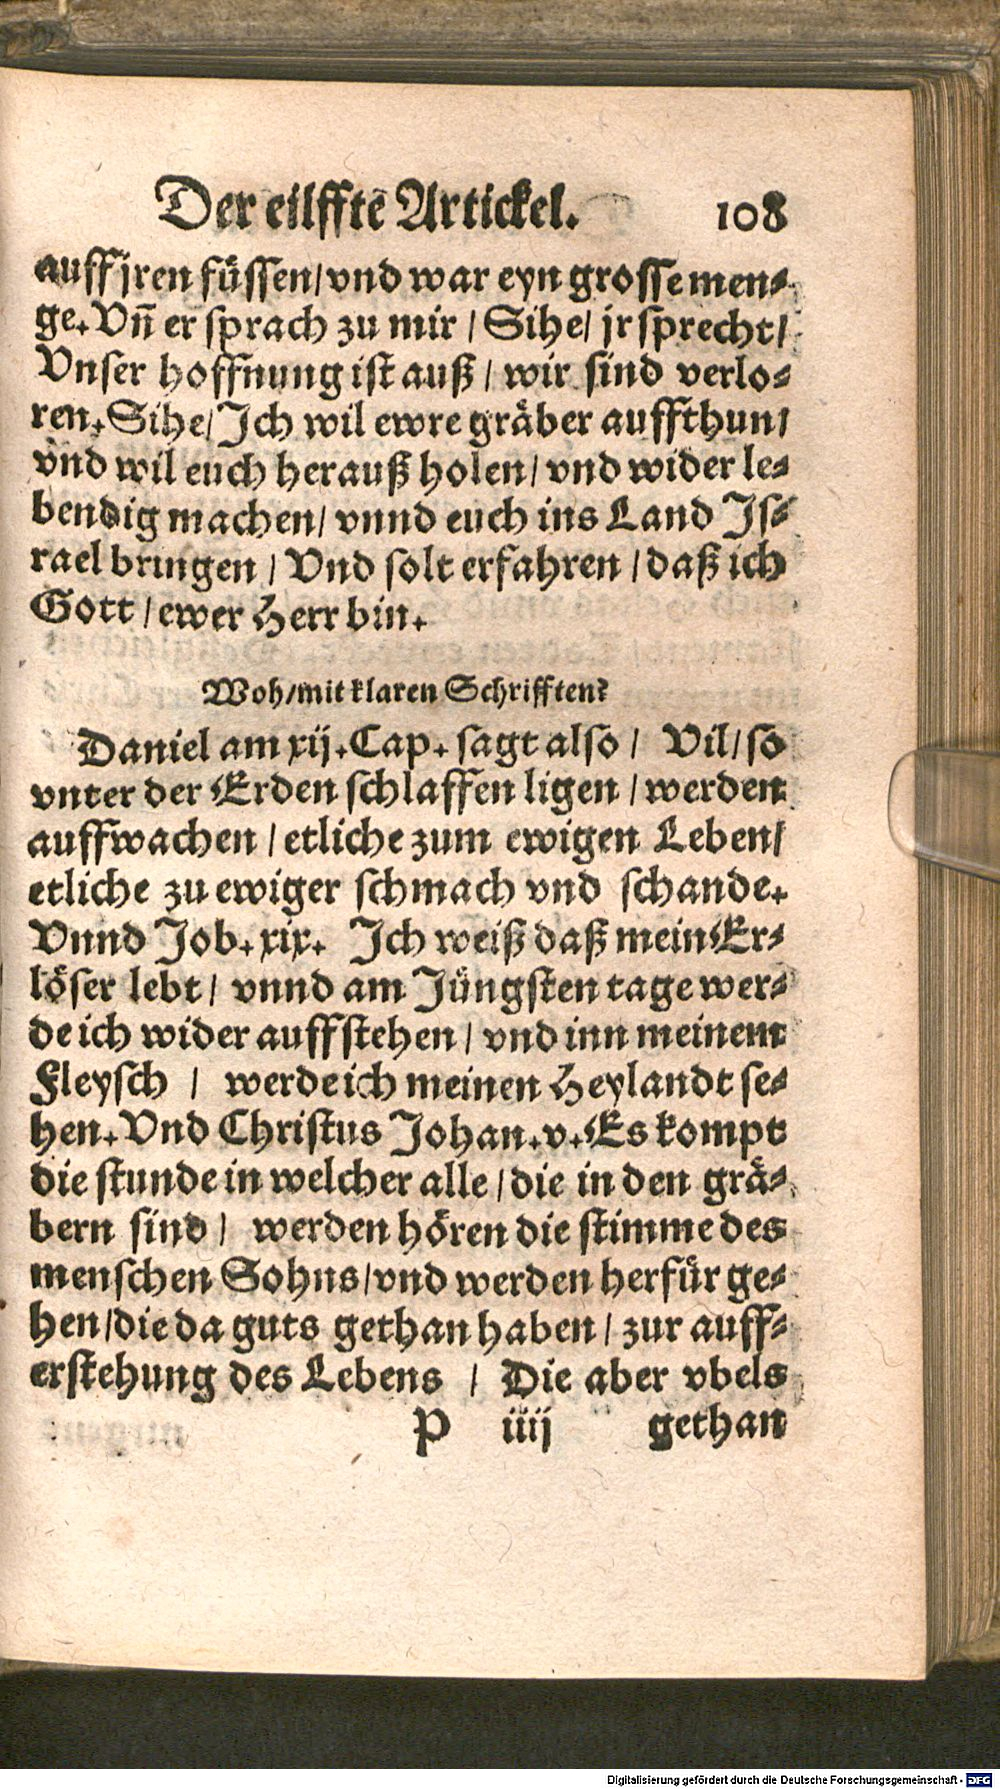 Der eilffte Artickel. 108
auff jren füssen/ vnd war eyn grosse men-
ge. Vñ er sprach zu mir / Sihe/ jr sprecht/
Vnser hoffnung ist auß / wir sind verlo-
ren. Sihe/ Ich wil ewre gräber auffthun/
vnd wil euch herauß holen/ vnd wider le-
bendig machen/ vnnd euch ins Land Is-
rael bringen / Vnd solt erfahren / daß ich
Gott / ewer Herr bin.
Woh/ mit klaren Schrifften?
Daniel am xij. Cap. sagt also / Vil/ so
vnter der Erden schlaffen ligen / werden
auffwachen / etliche zum ewigen Leben/
etliche zu ewiger schmach vnd schande.
Vnnd Job. xix. Ich weiß daß mein Er-
löser lebt/ vnnd am Jüngsten tage wer-
de ich wider auffstehen / vnd inn meinem
Fleysch / werde ich meinen Heylandt se-
hen. Vnd Christus Johan. v. Es kompt
die stunde in welcher alle / die in den grä-
bern sind / werden hören die stimme des
menschen Sohns/ vnd werden herfür ge-
hen/ die da guts gethan haben / zur auff-
erstehung des Lebens / Die aber vbels
P iiij gethan
Digitalisierung gefördert durch die Deutsche Forschungsgemeinschaft - DFG